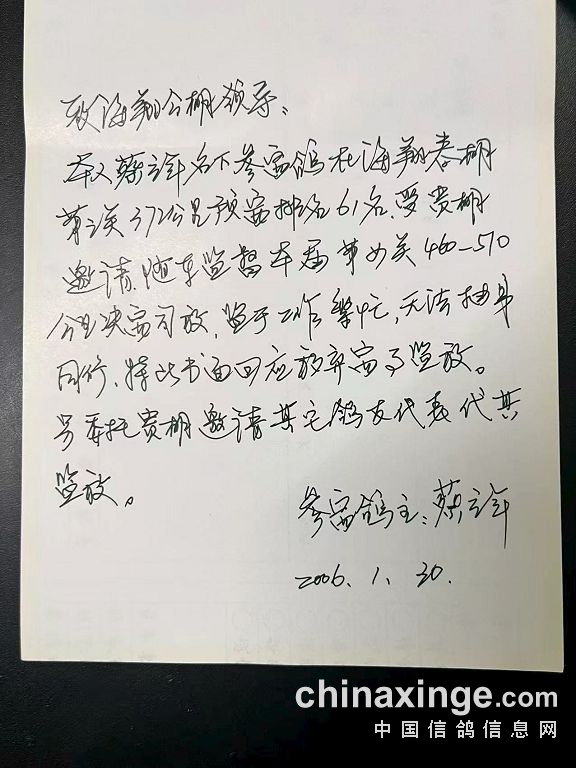 致海翔公棚领导:
本人蔡云年名下参赛鸽在海翔春棚
第三关372公里预赛排名61名.受贵棚
邀请随车监督本届第四关460—510
公里决赛司放,鉴于工作繁忙,无法抽身
同行、特此书面回应放弃赛事监放。
另委托贵棚邀请其它鸽友代表代其
监放。
参赛鸽主:蔡云年
2006.1.30.
chinaxinge.com
中国信鸽信息网